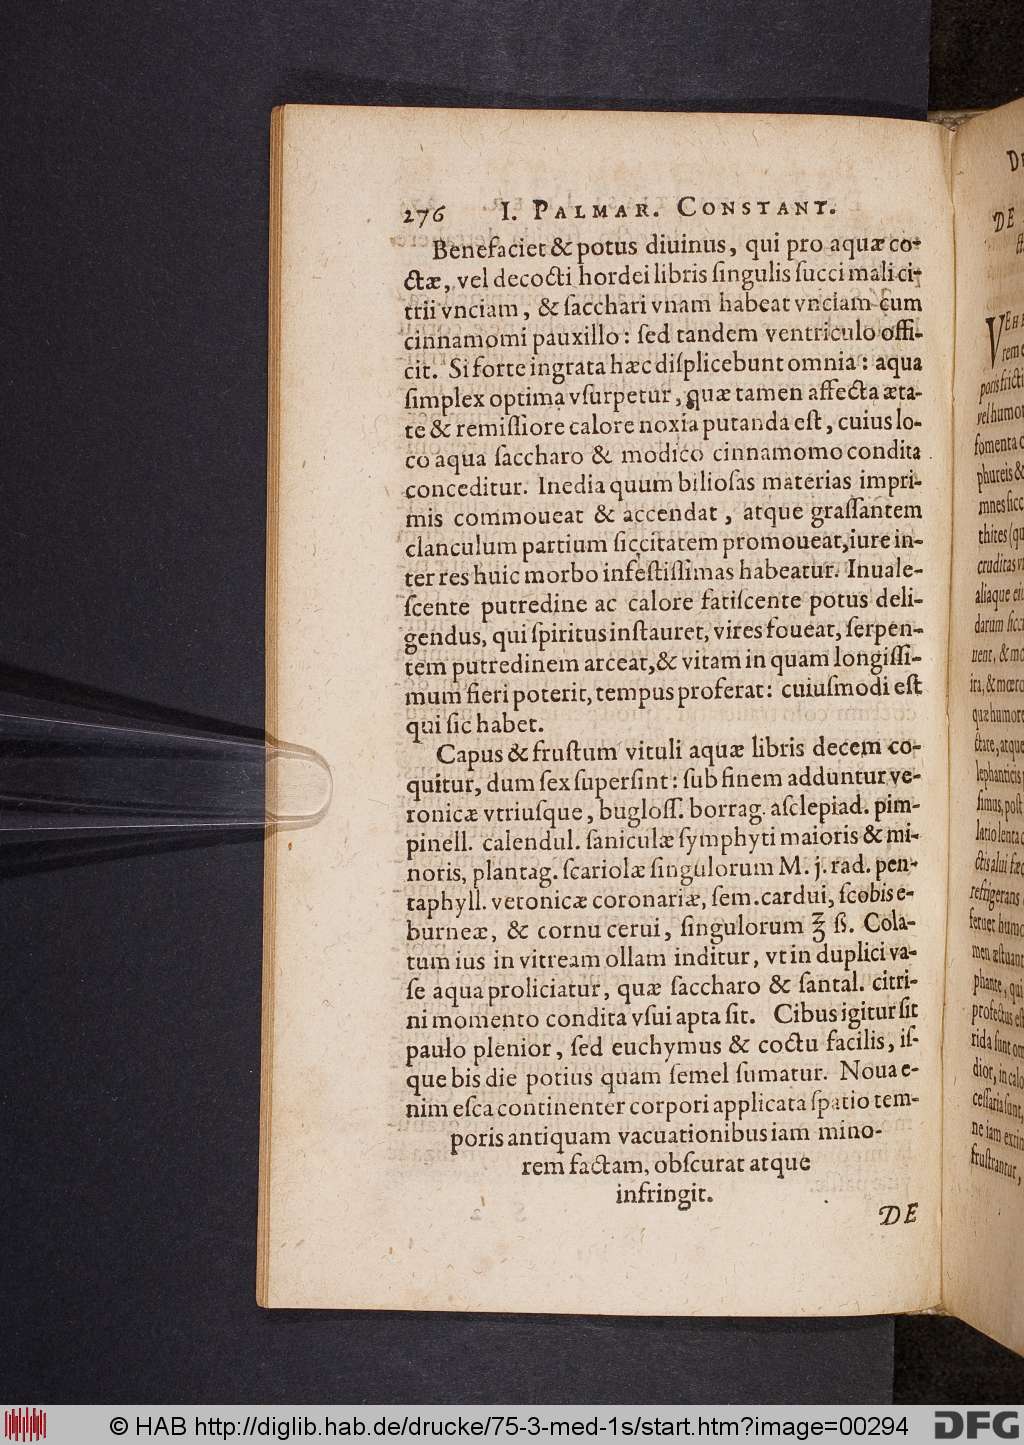 276 I. PALMAR. CONSTANT.
Benefaciet & potus diuinus, qui pro aquæ co-
ctæ, vel decocti hordei libris ſingulis ſucci mali ci-
trii vnciam, & ſacchari vnam habeat vnciam cum
cinnamomi pauxillo: ſed tandem ventriculo offi-
cit. Si forte ingrata hæc diſplicebunt omnia: aqua
ſimplex optima vſurpetur, quæ tamen affecta æta-
te & remiſſiore calore noxia putanda eſt, cuius lo-
co aqua ſaccharo & modico cinnamomo condita
conceditur. Inedia quum bilioſas materias impri-
mis commoueat & accendat, atque graſſantem
clanculum partium ſiccitatem promoueat, iure in-
ter res huic morbo infeſtiſſimas habeatur. Inuale-
ſcente putredine ac calore fatiſcente potus deli-
gendus, qui ſpiritus inſtauret, vires foueat, ſerpen-
tem putredinem arceat, & vitam in quam longiſſi-
mum fieri poterit, tempus proferat: cuiuſmodi eſt
qui ſic habet.
Capus & fruſtum vituli aquæ libris decem co-
quitur, dum ſex ſuperſint: ſub finem adduntur ve-
ronicæ vtriuſque, bugloſſ. borrag. aſclepiad. pim-
pinell. calendul. ſaniculæ ſymphyti maioris & mi-
noris, plantag. ſcariolæ ſingulorum M. j. rad. pen-
taphyll. vetonicæ coronariæ, ſem. cardui, ſcobis e-
burneæ, & cornu cerui, ſingulorum ʒ ß. Cola-
tum ius in vitream ollam inditur, vt in duplici va-
ſe aqua proliciatur, quæ ſaccharo & ſantal. citri-
ni momento condita vſui apta ſit. Cibus igitur ſit
paulo plenior, ſed euchymus & coctu facilis, iſ-
que bis die potius quam ſemel ſumatur. Noua e-
nim eſca continenter corpori applicata ſpatio tem-
poris antiquam vacuationibus iam mino-
rem factam, obſcurat atque
infringit.
DE
DE
VEHE
rem e
poris fricti
vel humo
fomenta
phureis &
mnes ſicc
thites (qu
cruditas
aliaque
darum ſicc
uent, & mo
ira, & mœro
quæ humore
ctare, atque
lephanticis
ſimus, poſt
latio lenta
ctis alui fæc
refrigerans
feruet humo
men æſtuant
phante, qui
profectus eſt
rida ſunt om
dior, in calo
ceſſaria ſunt,
ne iam extin
fruſtrantur,
© HAB http://diglib.hab.de/drucke/75-3-med-1s/start.htm?image=00294 DFG